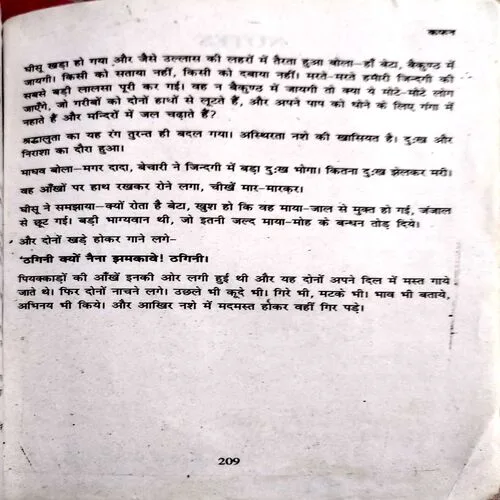 कफन
घीसू खड़ा हो गया और जैसे उल्लास की लहरों में तैरता हुआ बोला–हाँ बेटा, बैकुण्ठ में
जायगी। किसी को सताया नहीं, किसी को दबाया नहीं। मरते-मरते हमारी जिन्दगी की
सबसे बड़ी लालसा पूरी कर गई। वह न बैकुण्ठ में जायगी तो क्या ये मोटे-मोटे लोग
जाएँगे, जो गरीबों को दोनों हाथों से लूटते हैं, और अपने पाप को धोने के लिए गंगा में
नहाते हैं और मन्दिरों में जल चढ़ाते हैं?
श्रद्धालुता का यह रंग तुरन्त ही बदल गया। अस्थिरता नशे की खासियत है। दुःख और
निराशा का दौरा हुआ।
माधव बोला–मगर दादा, बेचारी ने जिन्दगी में बड़ा दुःख भोगा। कितना दुःख झेलकर मरी।
वह आँखों पर हाथ रखकर रोने लगा, चीखें मार-मारकर।
घीसू ने समझाया–क्यों रोता है बेटा, खुश हो कि वह माया-जाल से मुक्त हो गई, जंजाल
से छूट गई। बड़ी भाग्यवान थी, जो इतनी जल्द माया-मोह के बन्धन तोड़ दिये।
और दोनों खड़े होकर गाने लगे–
'ठगिनी क्यों नैना झमकावे! ठगिनी।
पियक्कड़ों की आँखें इनकी ओर लगी हुई थी और यह दोनों अपने दिल में मस्त गाये
जाते थे। फिर दोनों नाचने लगे। उछले भी कूदे भी। गिरे भी, मटके भी। भाव भी बताये,
अभिनय भी किये। और आखिर नशे में मदमस्त होकर वहीं गिर पड़े।
209